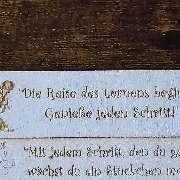 "Die Reise des Lernens begin
Genieße jeden Schritt!
"Mit jedem Schritt, den du ge
wächst du ein Stückchen me